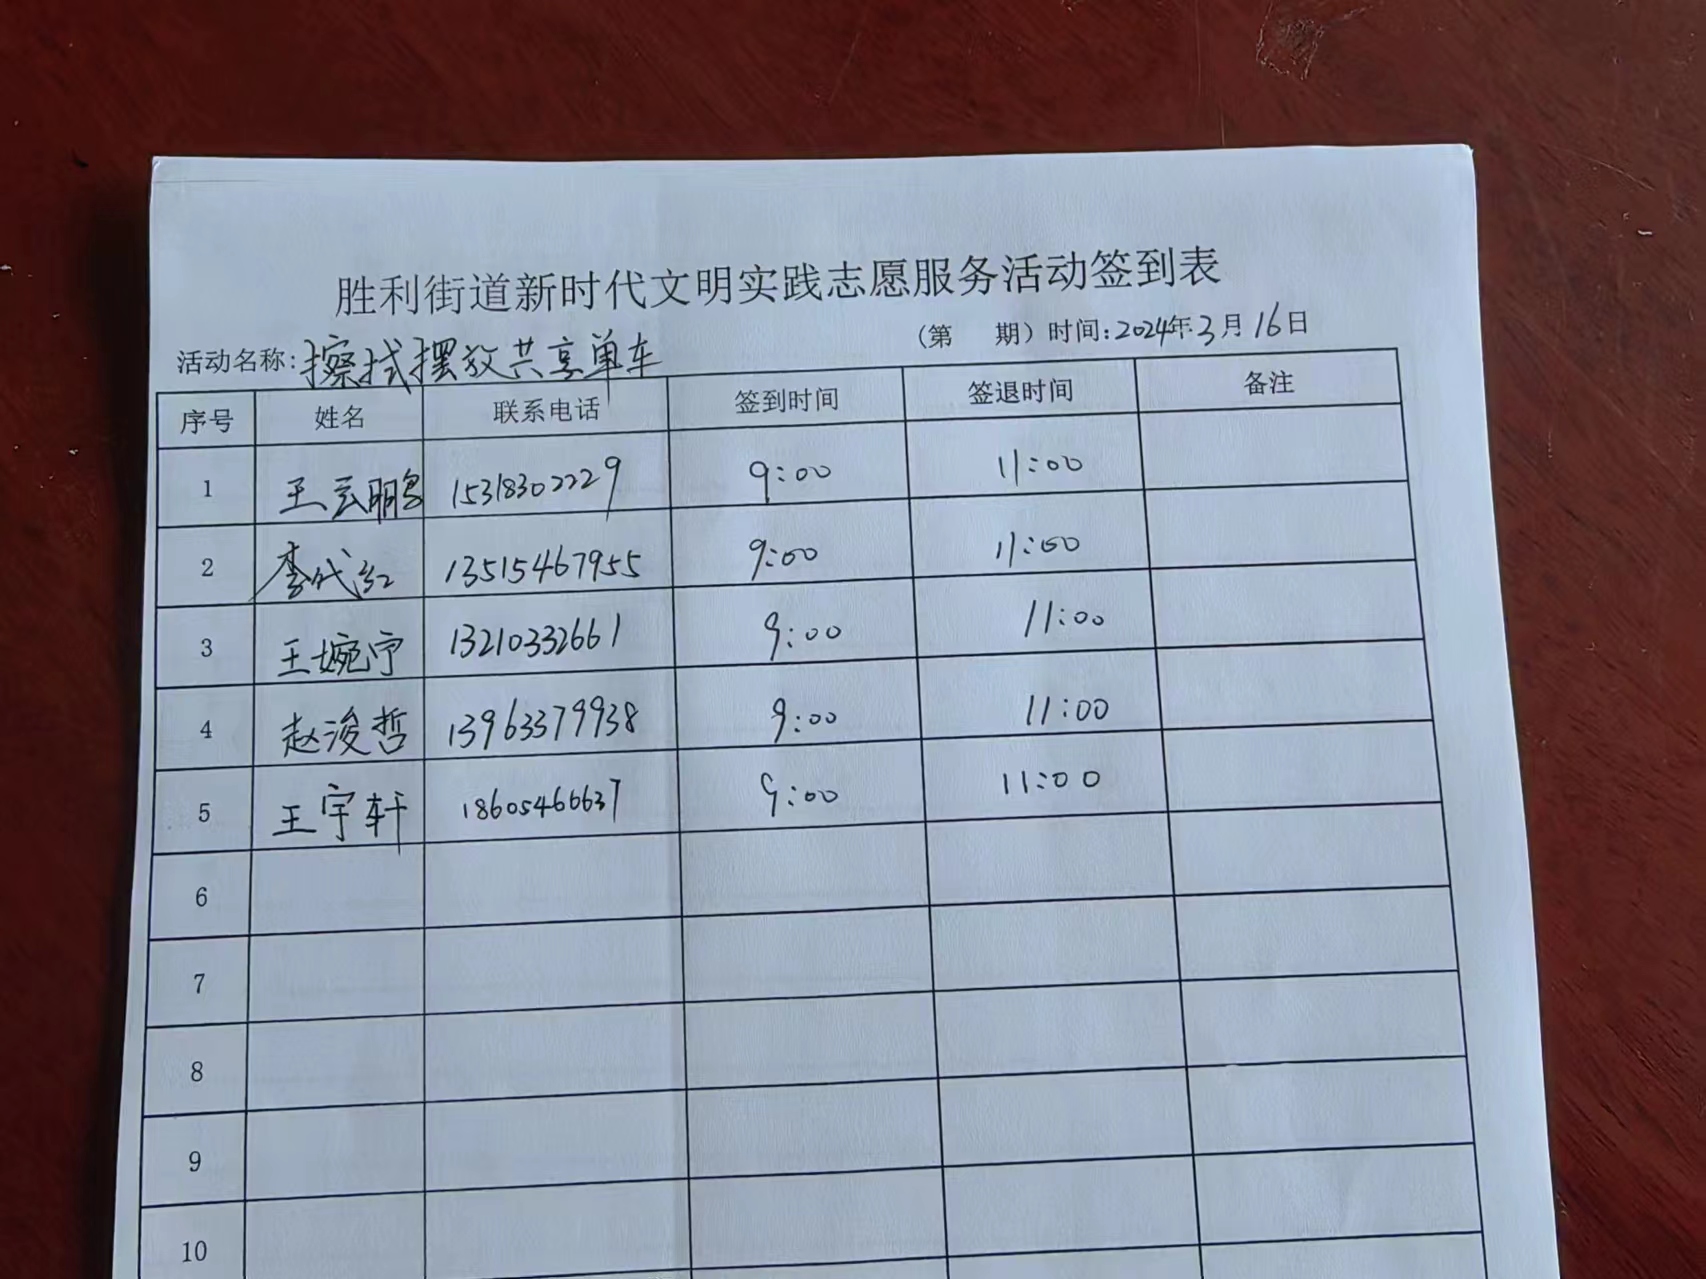 胜利街道新时代文明实践志愿服务活动签到表
活动名称:擦拭摆放共享单车 (第 期) 时间:2024年3月16日
序号 姓名 联系电话 签到时间 签退时间 备注
1 王云鹏 15318302229 9:00 11:00
2 李代红 13515467955 9:00 11:00
3 王婉宁 13210332661 9:00 11:00
4 赵浚哲 13963379938 9:00 11:00
5 王宇轩 18605466637 9:00 11:00
6
7
8
9
10